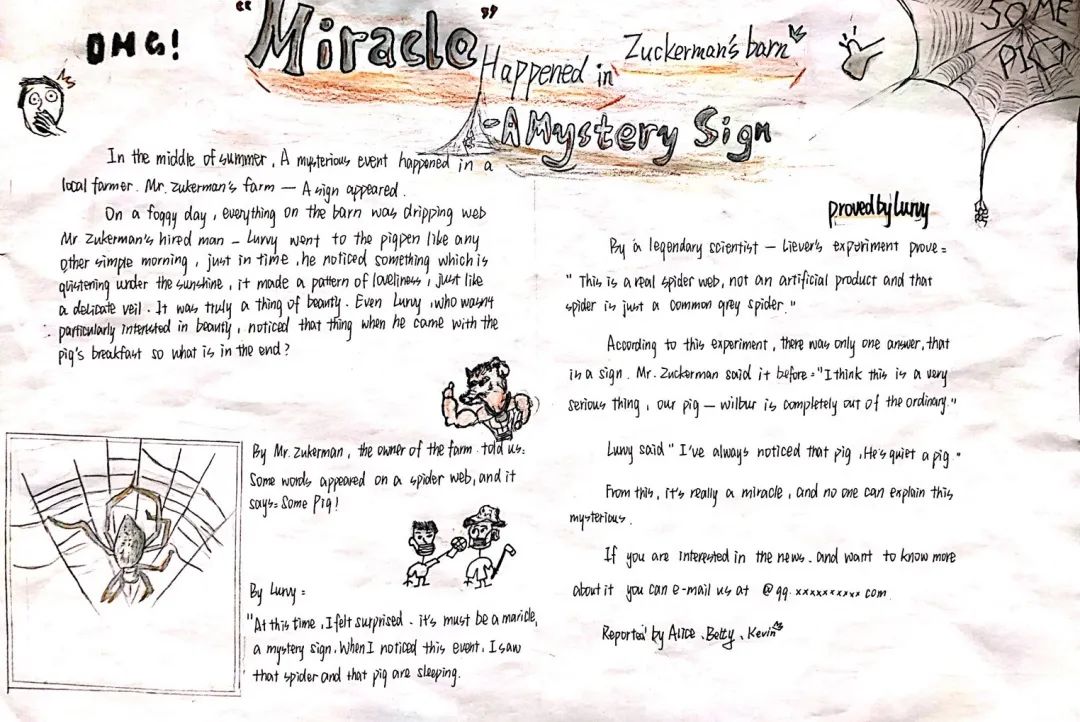 OMG!
"Miracle"
Happened in Zuckerman's barn
-A Mystery Sign
SOME
PIG
In the middle of summer, A mysterious event happened in a
local farmer. Mr. Zukerman's farm — A sign appeared.
On a foggy day, everything on the barn was dripping web
Mr Zukerman's hired man - Lurvy went to the pigpen like any
other simple morning, just in time, he noticed something which is
glistening under the sunshine, it made a pattern of loveliness, just like
a delicate veil. It was truly a thing of beauty. Even Lurvy, who wasn't
particularly interested in beauty, noticed that thing when he came with the
pig's breakfast so what is in the end?
By Mr. Zukerman, the owner of the farm told us:
Some words appeared on a spider web, and it
says: Some Pig!
By Lurvy:
"At this time, I felt surprised. it's must be a maricle,
a mystery sign. When I noticed this event. I saw
that spider and that pig are sleeping.
proved by Lurvy
By a legendary scientist — Liever's experiment prove:
"This is a real spider web, not an artificial product and that
spider is just a common grey spider."
According to this experiment, there was only one answer, that
is a sign. Mr. Zuckerman said it before: "I think this is a very
serious thing, our pig — wilbur is completely out of the ordinary."
Lurvy said "I've always noticed that pig, He's quiet a pig."
From this, it's really a miracle, and no one can explain this
mysterious.
If you are interested in the news. and want to know more
about it you can e-mail us at @qq.xxxxxxxxxx com.
Reported by Alice, Betty, Kevin